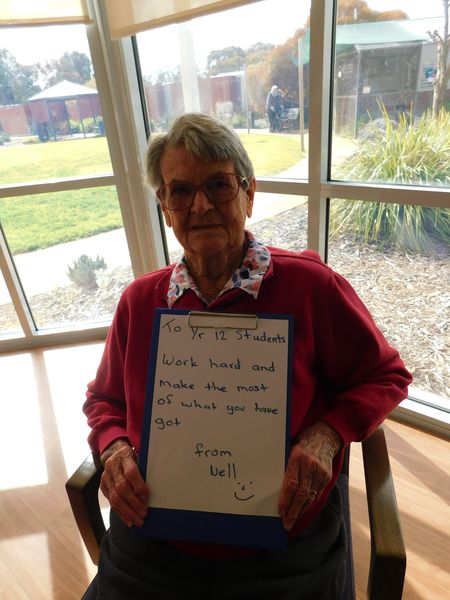 To Yr 12 Students
Work hard and
make the most
of what you have
got
from
Nell